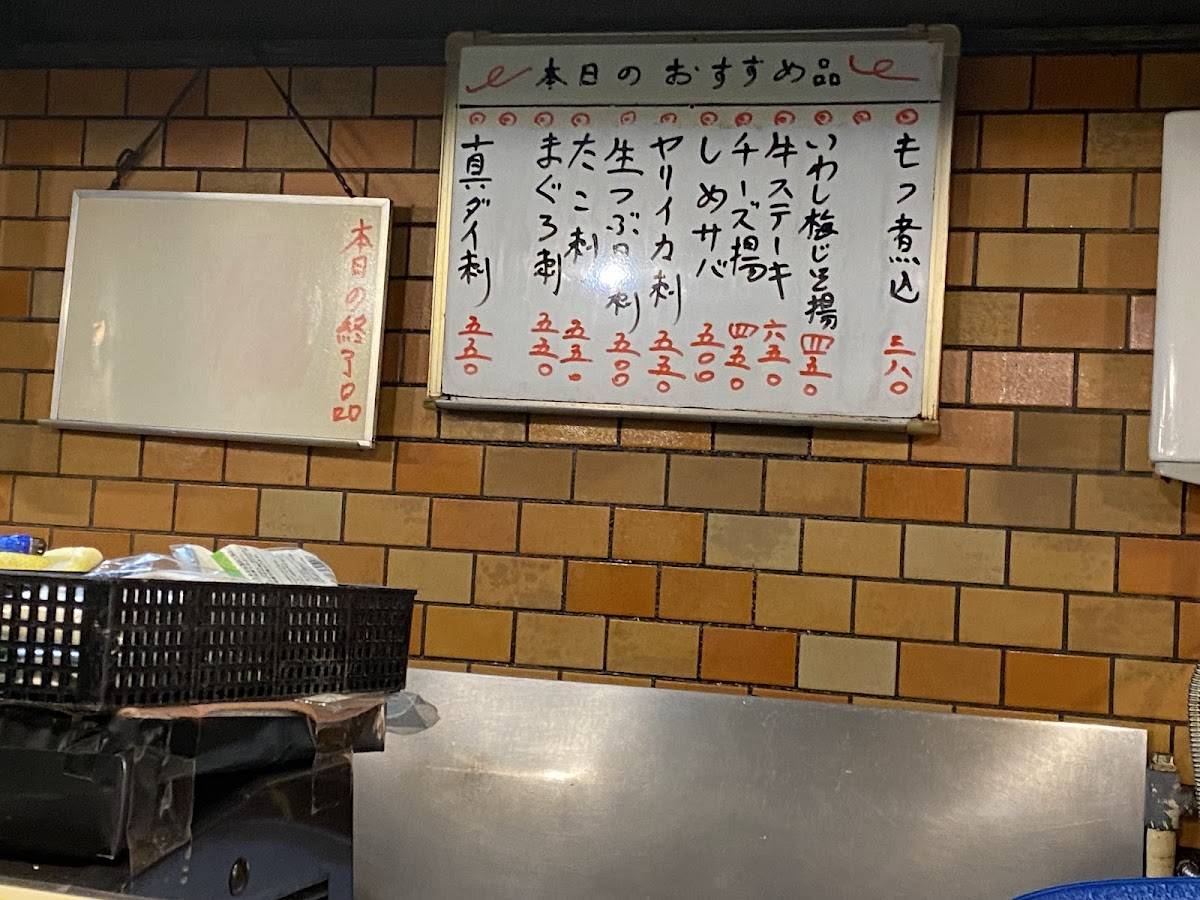 本日のおすすめ品
もつ煮込 三八〇
いわし梅じそ揚 四五〇
牛ステーキ 六五〇
チーズ揚 四五〇
しめサバ 五〇〇
ヤリイカ刺 五五〇
生つぶ貝刺 五〇〇
たこ刺 五五〇
まぐろ刺 五五〇
真ダイ刺 五五〇
本日の終了